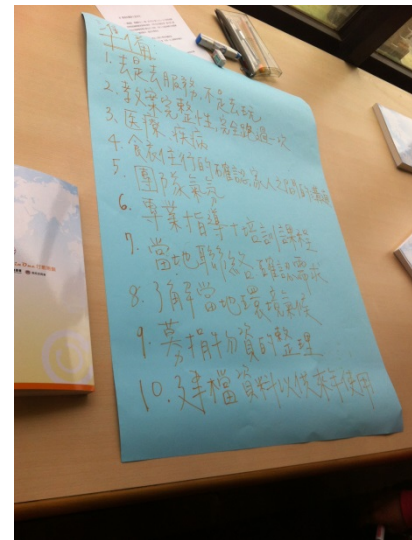 準備
1. 去是去服務,不是去玩
2. 教案完整性,完全跑過一次
3. 醫療、疾病
4. 食衣住行的確認,家人之間的溝通
5. 團隊氣氛
6. 專業指導+培訓課程
7. 當地聯絡,確認需求
8. 了解當地環境、氣候
9. 募捐物資的整理
10. 建檔資料以供來年使用